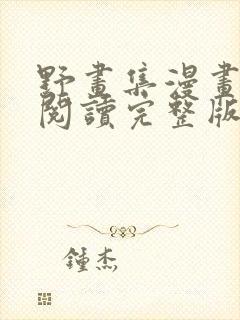 野畫集漫畫
閱讀完整版
鍾杰